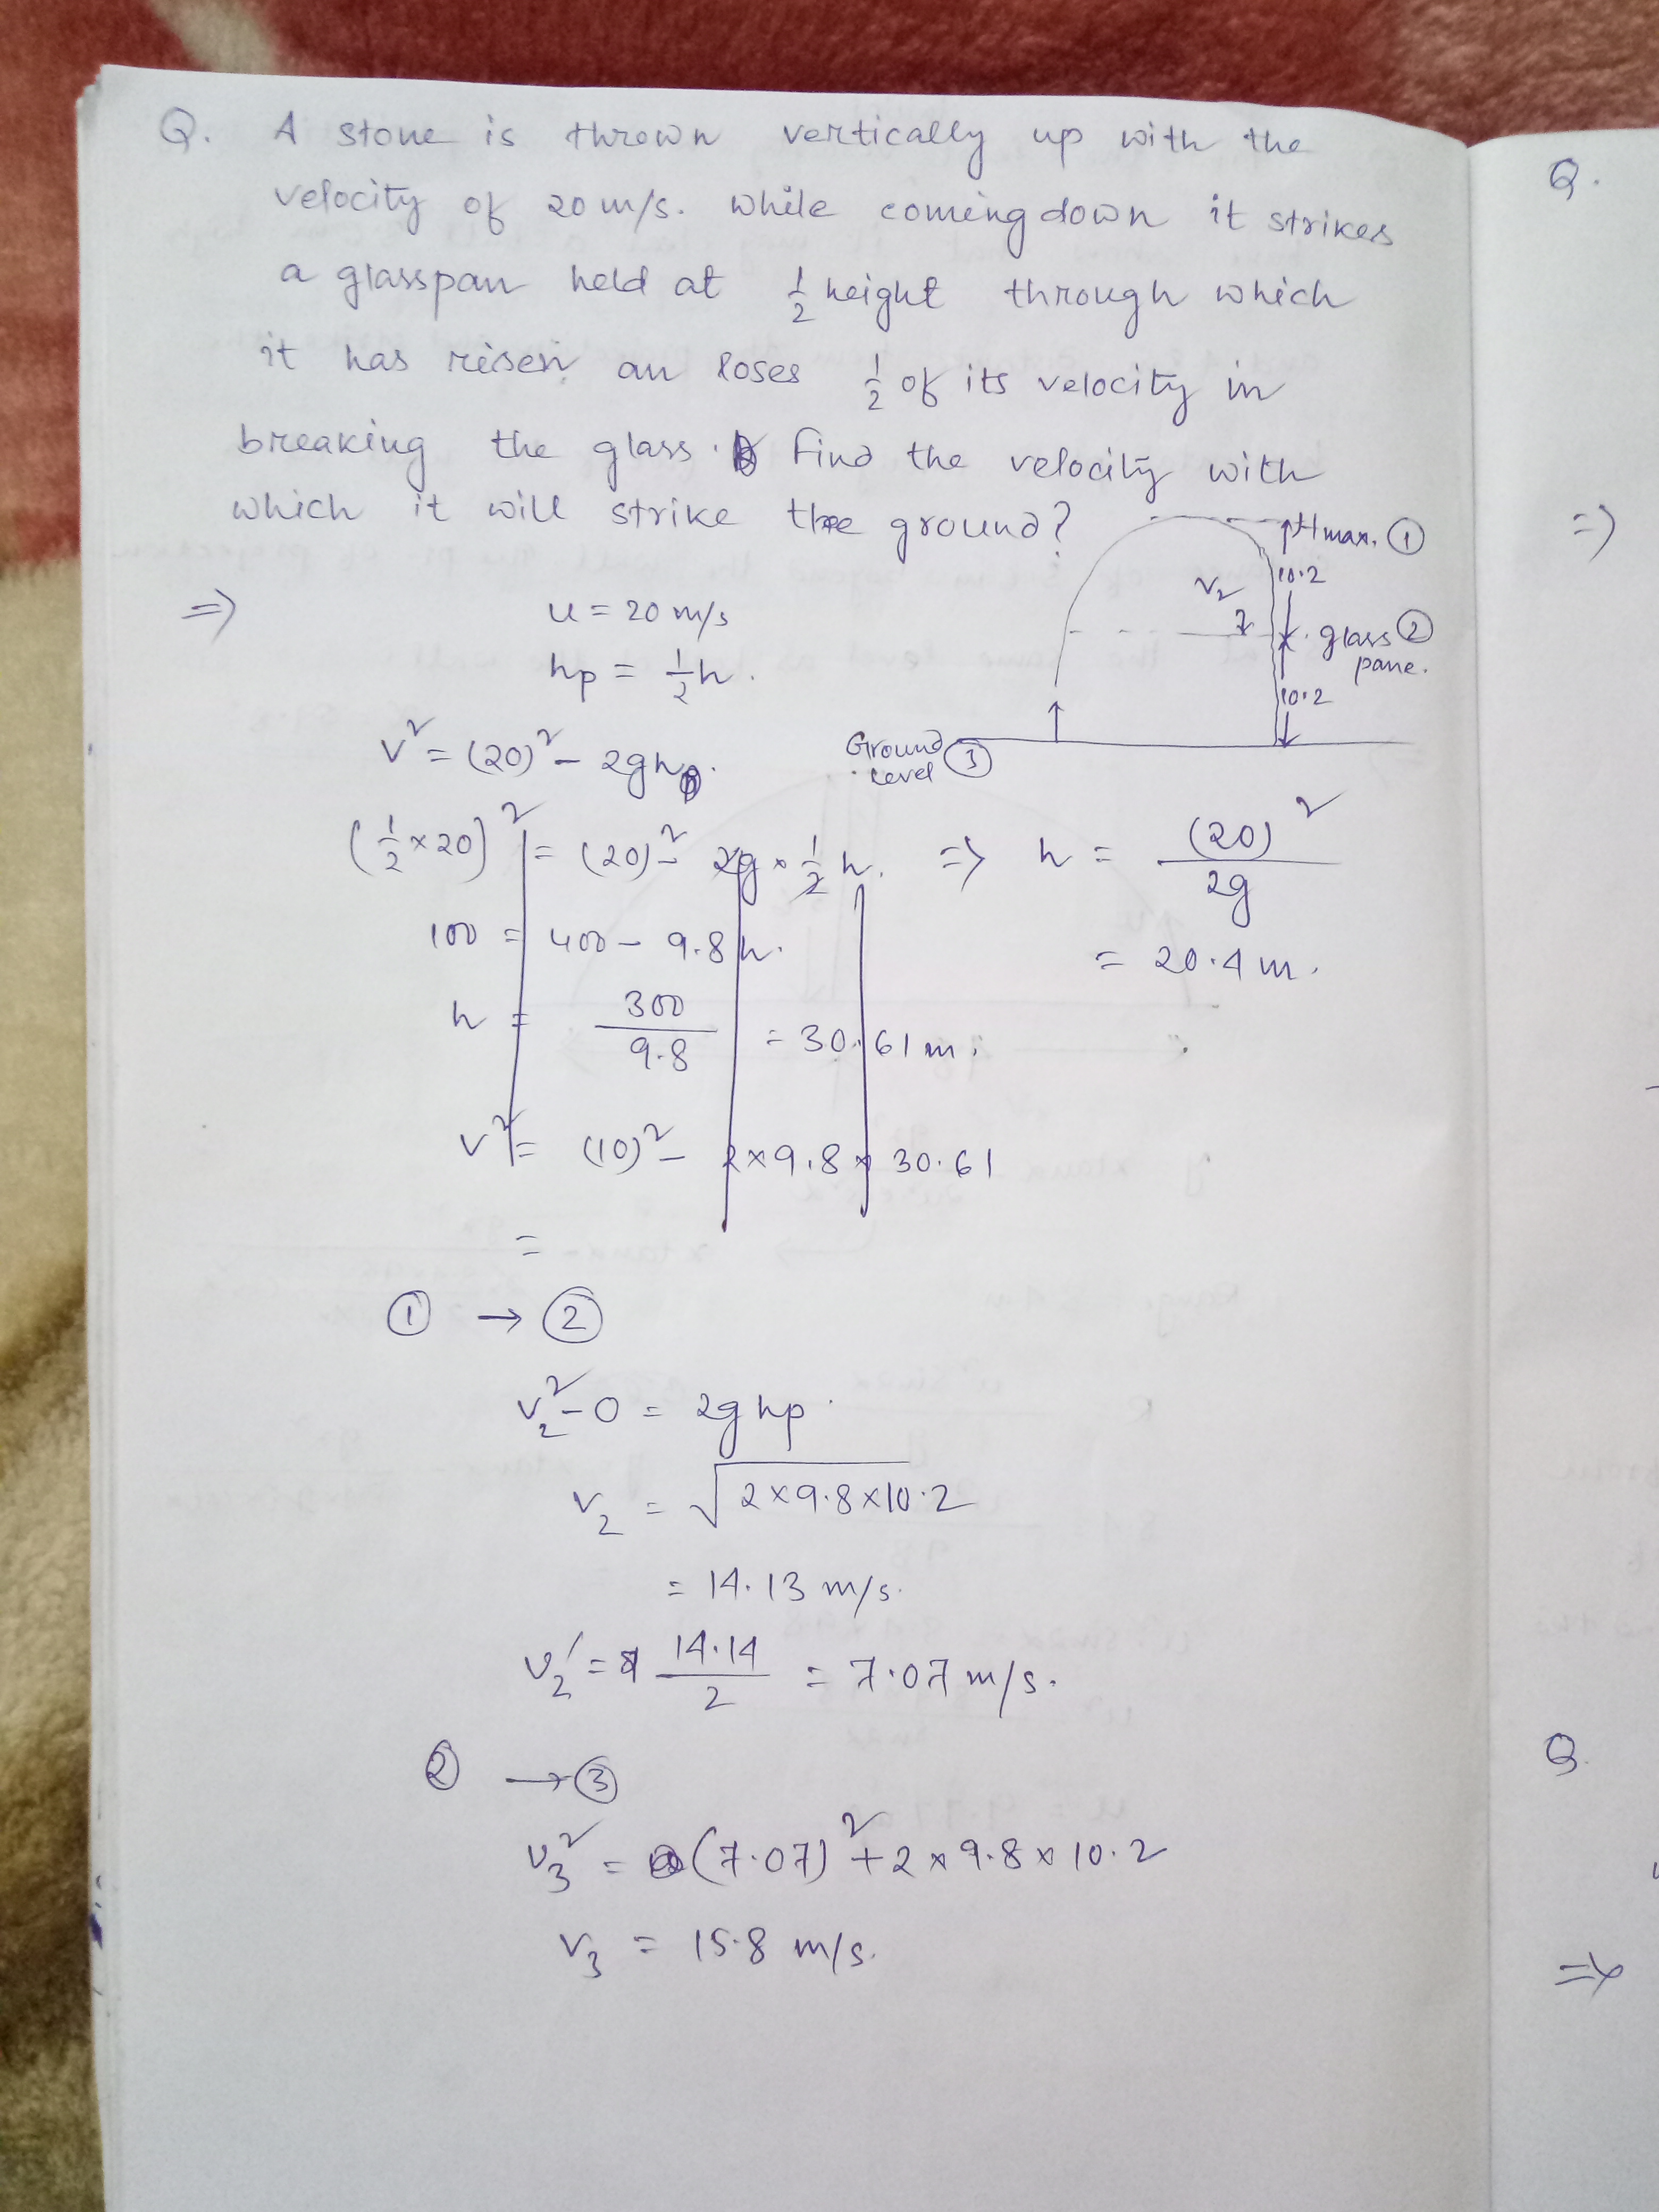 Q. A stone is thrown vertically up with the
velocity of 20 m/s. while coming down it strikes
a glasspan held at 1/2 height through which
it has risen, an loses 1/2 of its velocity in
breaking the glass. Find the velocity with
which it will strike the ground?
Hmax. ①
10.2
v₂
glass ② pane.
10.2
Ground level ③
=> u = 20 m/s
hp = 1/2 h.
v² = (20)² - 2gh
(1/2 × 20)² = (20)² - 2g × 1/2 h. => h = (20)² / 2g
100 = 400 - 9.8 h. = 20.4 m.
h = 300 / 9.8 = 30.61 m.
v² = (10)² - 2×9.8 × 30.61
=
① → ②
v₂² - 0 = 2g hp
v₂ = √2×9.8×10.2
= 14.13 m/s.
v₂' = 14.14 / 2 = 7.07 m/s.
② → ③
v₃² = (7.07)² + 2 × 9.8 × 10.2
v₃ = 15.8 m/s.
Q.
=>
Q.
=>